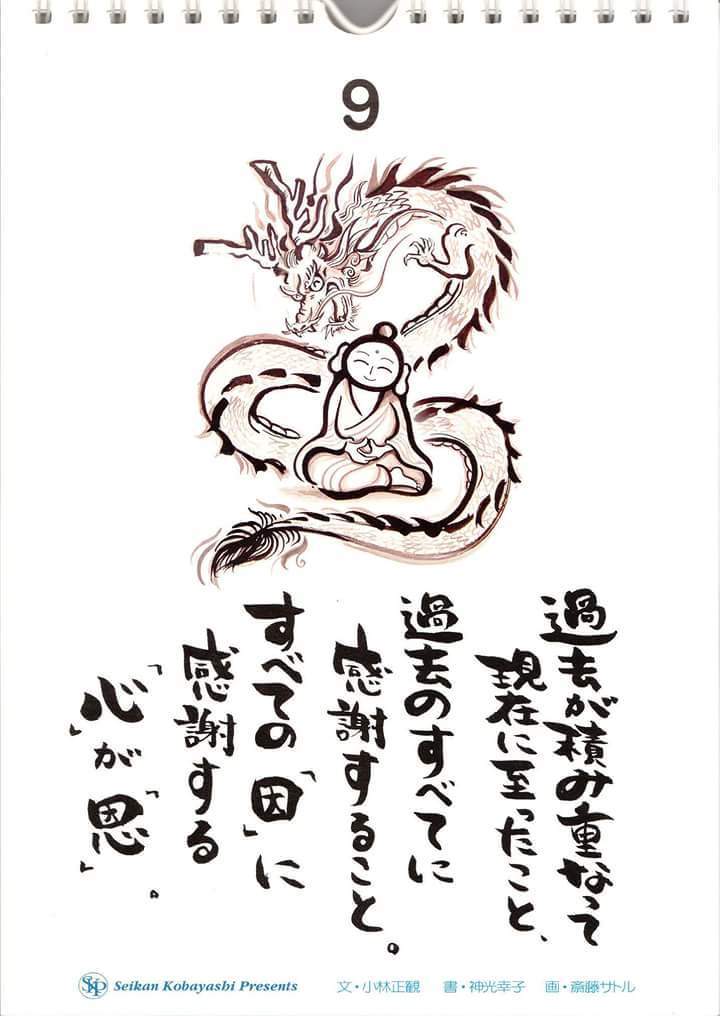 9
過去が積み重なって
現在に至ったこと、
過去のすべてに
感謝すること。
すべての「因」に
感謝する
「心」が「恩」。
SKP Seikan Kobayashi Presents
文・小林正観 書・神光幸子 画・斎藤サトル